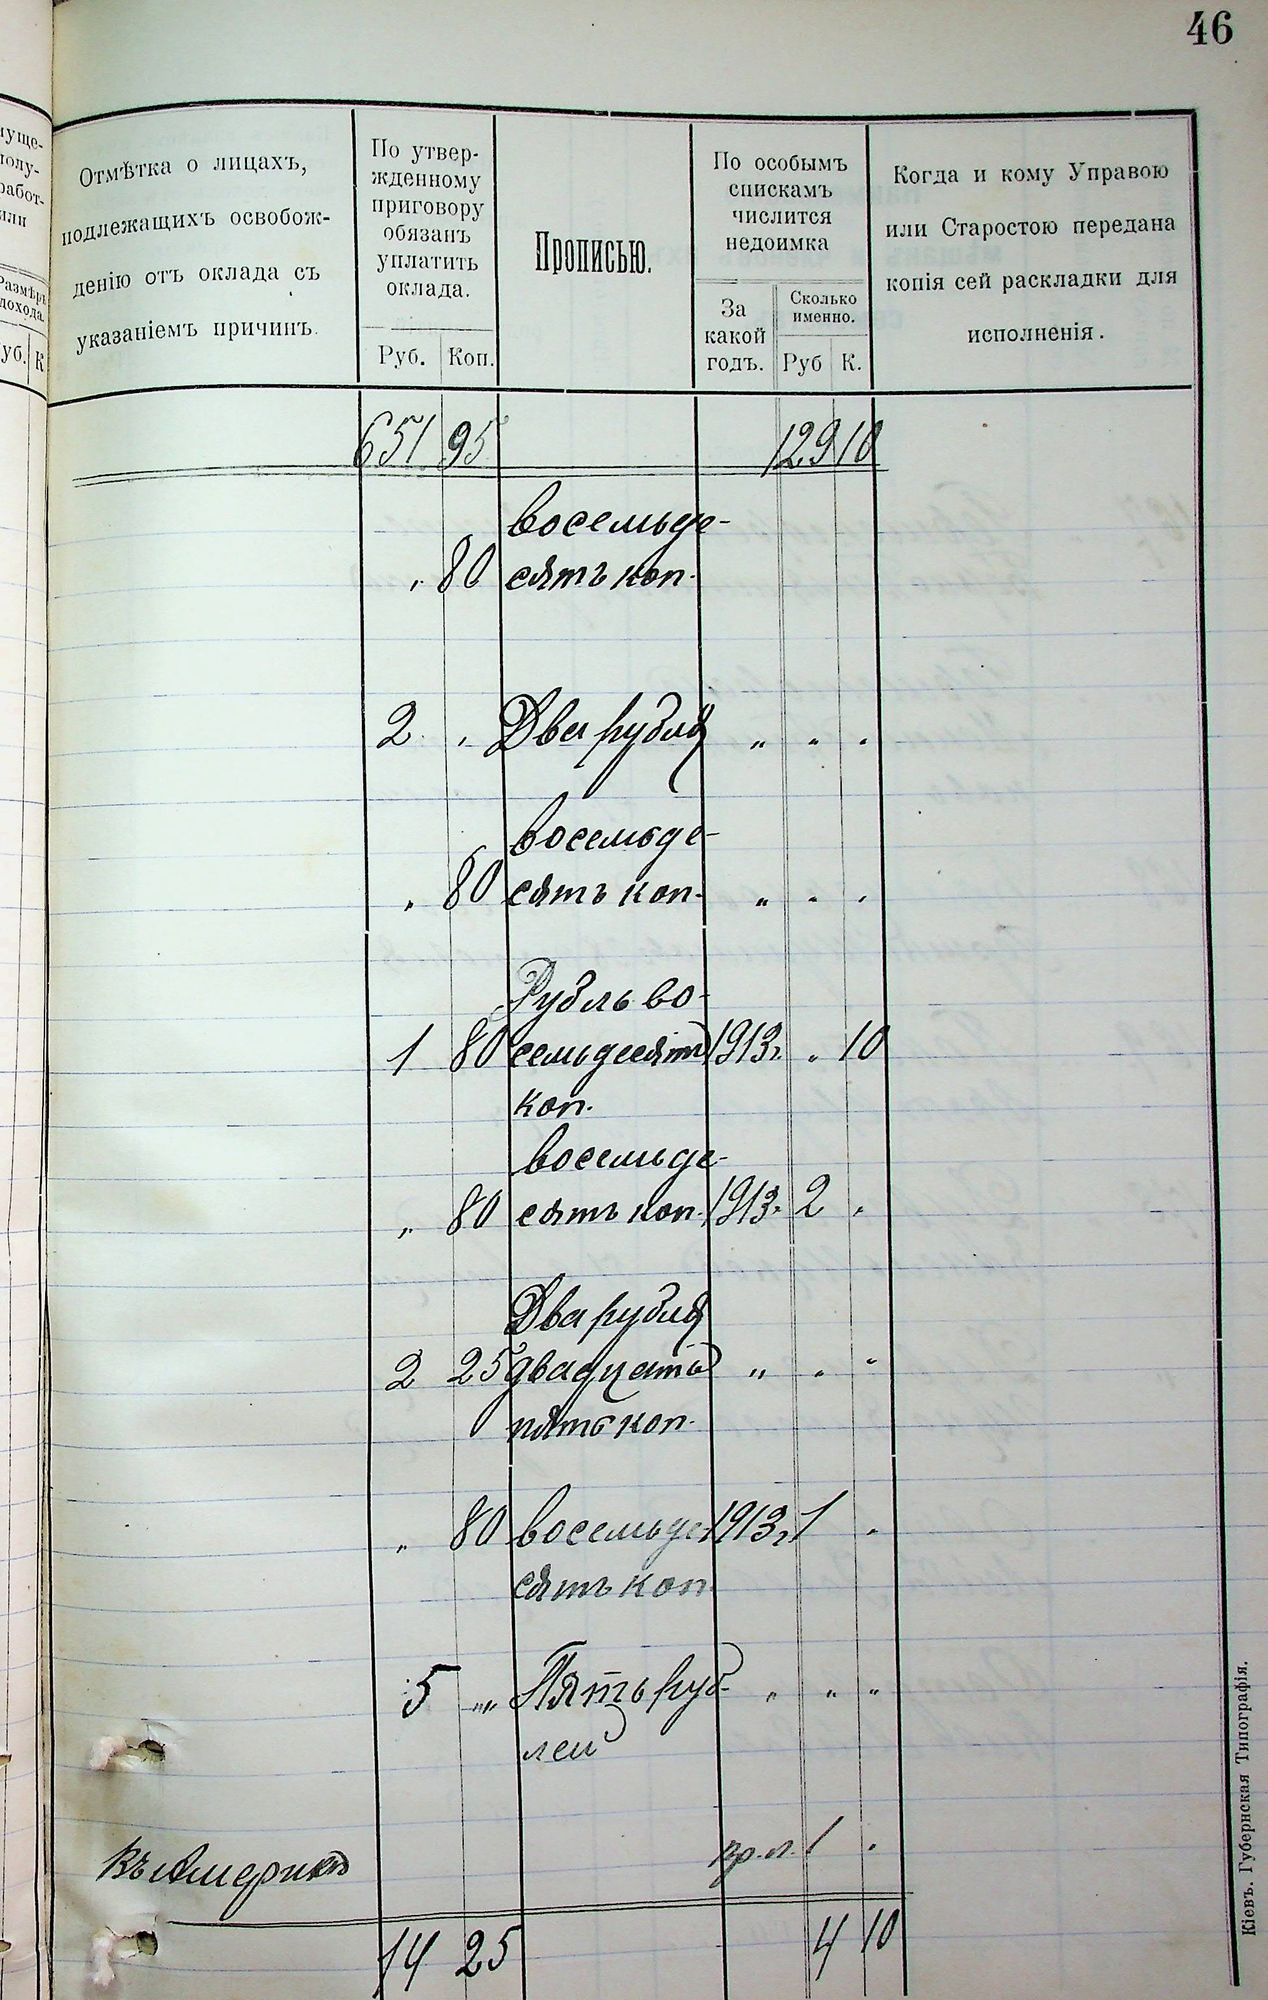 46
муще-
полу-
работ-
или
Размѣръ
дохода.
Руб. К
Отмѣтка о лицахъ,
подлежащихъ освобож-
денію отъ оклада съ
указаніемъ причинъ.
По утвер-
жденному
приговору
обязанъ
уплатить
оклада.
Руб. Коп.
Прописью.
По особымъ
спискамъ
числится
недоимка
За
какой
годъ.
Сколько
именно.
Руб К.
Когда и кому Управою
или Старостою передана
копія сей раскладки для
исполненія.
651 95 129 10
восемьде-
" 80 сятъ коп.
2 " Два рубля " " "
восемьде-
" 80 сятъ коп. " " "
Рубль во-
1 80 семьдесятъ 1913г. " 10
коп.
восемьде-
" 80 сятъ коп. 1913г. 2 "
Два рубля
2 25 двадцать " " "
пять коп.
" 80 восемьде- 1913г. 1 "
сятъ коп.
5 " Пять руб- " " "
лей
пр. л. 1 "
Въ Америкѣ
14 25 4 10
Кіевъ. Губернская Типографія.